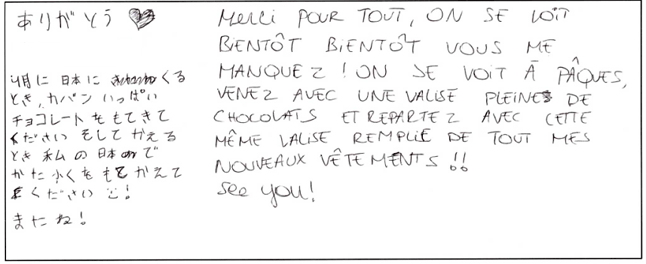 ありがとう ♥
4月に 日本に くる
とき、カバン いっぱい
チョコレートを もてきて
ください そして かえる
とき 私の 日本 で
かた ふくを もて かえて
ください !
またね!
MERCI POUR TOUT, ON SE VOIT
BIENTÔT BIENTÔT VOUS ME
MANQUEZ ! ON SE VOIT À PÂQUES,
VENEZ AVEC UNE VALISE PLEINES DE
CHOCOLATS ET REPARTEZ AVEC CETTE
MÊME VALISE REMPLIE DE TOUT MES
NOUVEAUX VÊTEMENTS !!
See you!